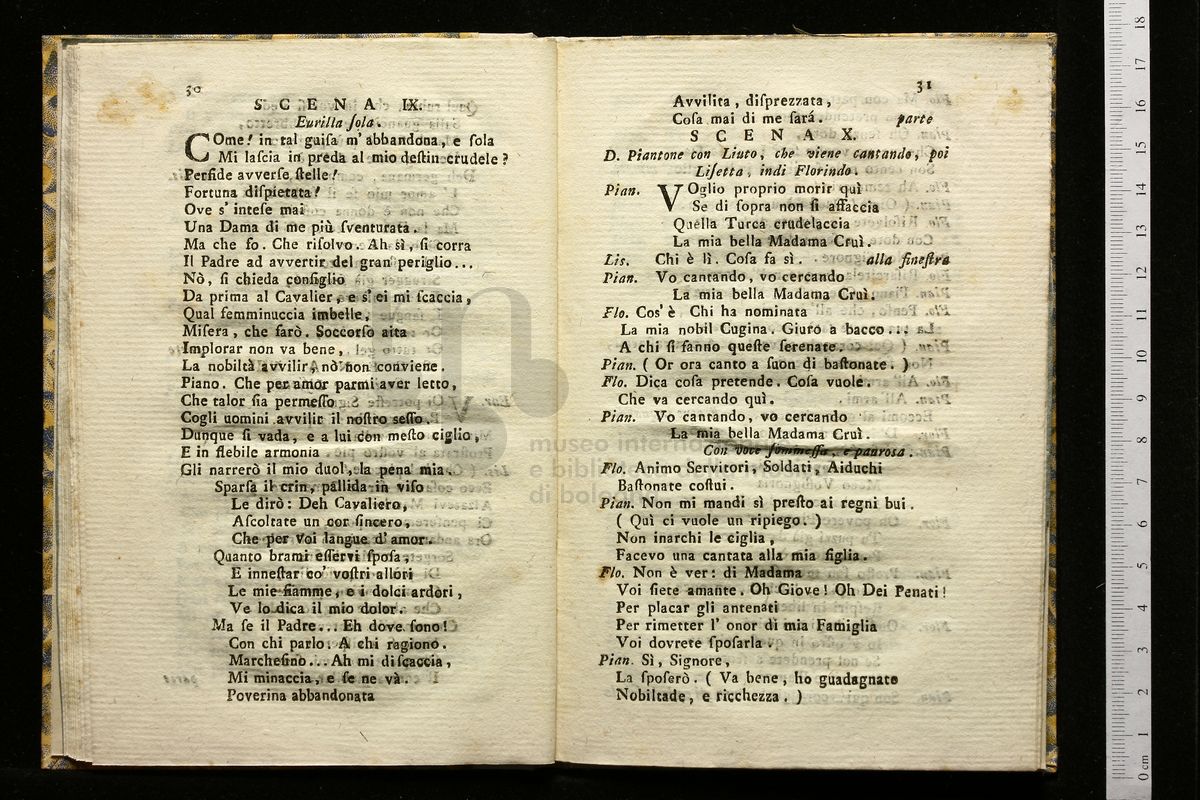 30
SCENA IX.
Eurilla ſola.
COme! in tal guiſa m' abbandona, e ſola
Mi laſcia in preda al mio deſtin crudele?
Perfide avverſe ſtelle!
Fortuna diſpietata!
Ove s' inteſe mai
Una Dama di me più ſventurata.
Ma che fo. Che riſolvo. Ah sì, ſi corra
Il Padre ad avvertir del gran periglio...
Nò, ſi chieda conſiglio
Da prima al Cavalier, e s' ei mi ſcaccia,
Qual femminuccia imbelle,
Miſera, che farò. Soccorſo aita
Implorar non va bene,
La nobiltà avvilir, nò non conviene.
Piano. Che per amor parmi aver letto,
Che talor ſia permeſſo
Cogli uomini avvilir il noſtro ſeſſo.
Dunque ſi vada, e a lui con meſto ciglio,
E in flebile armonia
Gli narrerò il mio duol, la pena mia.
Sparſa il crin, pallida in viſo
Le dirò: Deh Cavaliero,
Aſcoltate un cor ſincero,
Che per voi langue d' amor.
Quanto brami eſſervi ſpoſa,
E inneſtar co' voſtri allori
Le mie fiamme, e i dolci ardori,
Ve lo dica il mio dolor.
Ma ſe il Padre... Eh dove ſono!
Con chi parlo. A chi ragiono.
Marcheſino... Ah mi diſcaccia,
Mi minaccia, e ſe ne và.
Poverina abbandonata
31
Avvilita, diſprezzata,
Coſa mai di me ſará. parte
SCENA X.
D. Piantone con Liuto, che viene cantando, poi
Liſetta, indi Florindo.
Pian. VOglio proprio morir quì
Se di ſopra non ſi affaccia
Quella Turca crudelaccia
La mia bella Madama Cruì.
Lis. Chi è lì. Coſa fa sì. alla fineſtra
Pian. Vo cantando, vo cercando
La mia bella Madama Cruì.
Flo. Cos' è Chi ha nominata
La mia nobil Cugina. Giuro a bacco...
A chi ſi fanno queſte ſerenate.
Pian. (Or ora canto a ſuon di baſtonate.)
Flo. Dica coſa pretende. Coſa vuole.
Che va cercando quì.
Pian. Vo cantando, vo cercando
La mia bella Madama Cruì.
Con voce ſommeſſa, e pauroſa.
Flo. Animo Servitori, Soldati, Aiduchi
Baſtonate coſtui.
Pian. Non mi mandi sì preſto ai regni bui.
(Quì ci vuole un ripiego.)
Non inarchi le ciglia,
Facevo una cantata alla mia figlia.
Flo. Non è ver: di Madama
Voi ſiete amante. Oh Giove! Oh Dei Penati!
Per placar gli antenati
Per rimetter l' onor di mia Famiglia
Voi dovrete ſpoſarla.
Pian. Sì, Signore,
La ſpoſerò. (Va bene, ho guadagnato
Nobiltade, e ricchezza.)